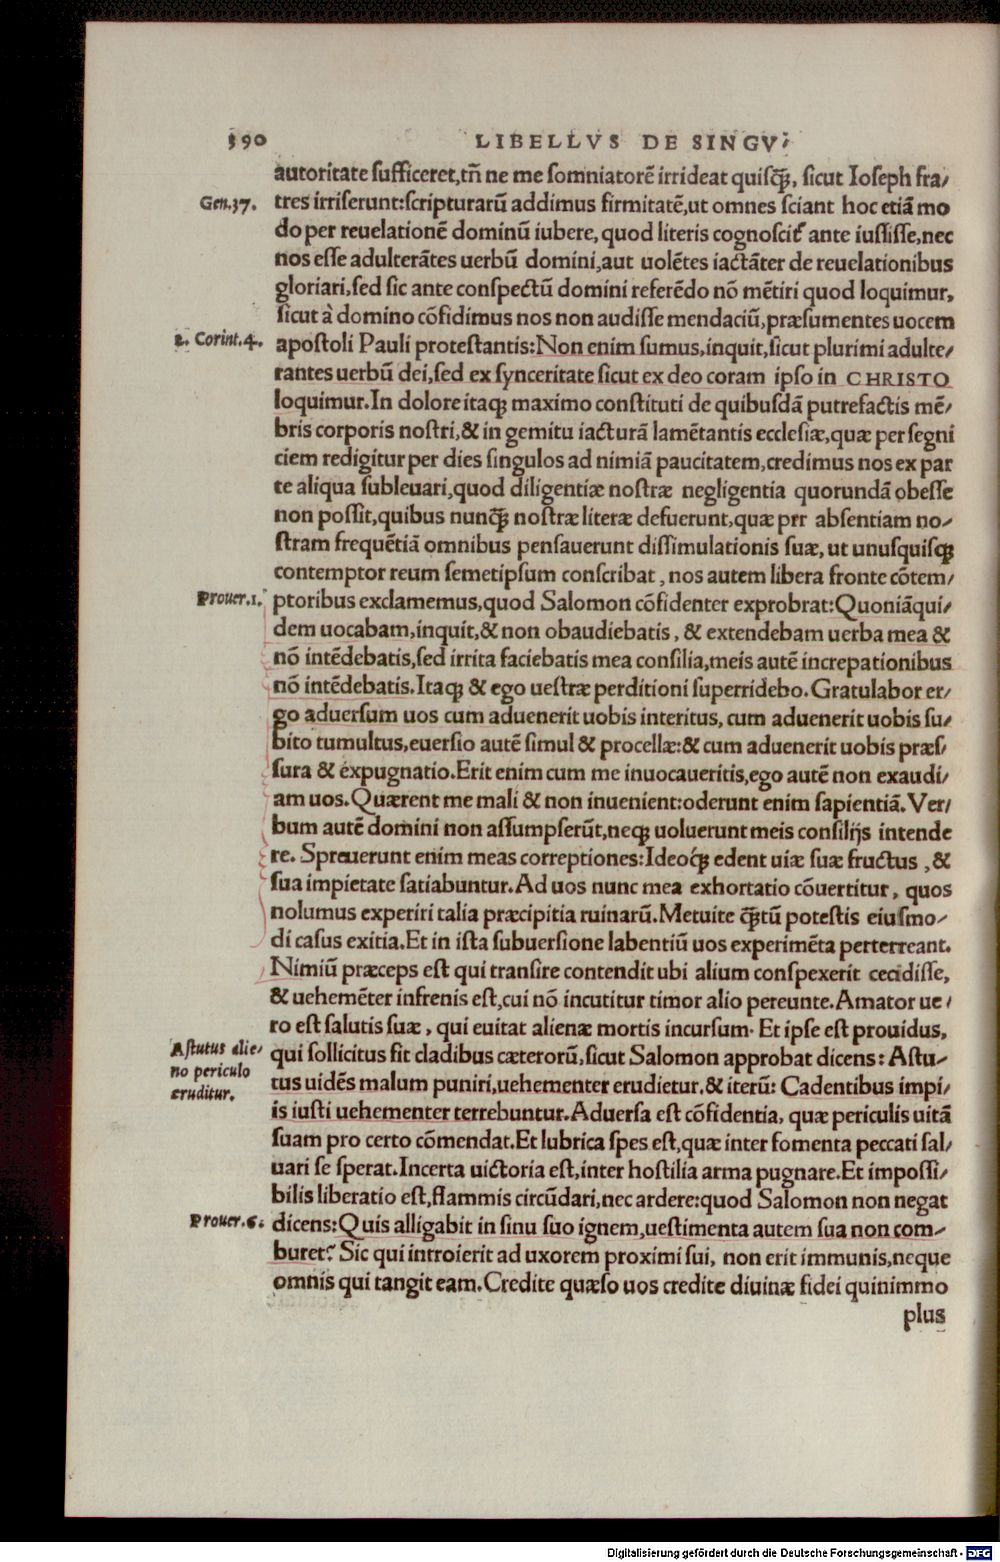 390 LIBELLVS DE SINGV⸗
autoritate ſufficeret,tñ ne me ſomniatorē irrideat quiſq̃, ſicut Ioſeph fra⸗
Gen.37. tres irriſerunt:ſcripturarū addimus firmitatē,ut omnes ſciant hoc etiā mo
do per reuelationē dominū iubere, quod literis cognoſcit᷑ ante iuſſiſſe,nec
nos eſſe adulterātes uerbū domini,aut uolētes iactāter de reuelationibus
gloriari,ſed ſic ante conſpectū domini referēdo nō mētiri quod loquimur,
ſicut à domino cōfidimus nos non audiſſe mendaciū,præſumentes uocem
2. Corint.4. apoſtoli Pauli proteſtantis:Non enim ſumus,inquit,ſicut plurimi adulte⸗
rantes uerbū dei,ſed ex ſynceritate ſicut ex deo coram ipſo in CHRISTO
loquimur.In dolore itaqꝫ maximo conſtituti de quibuſdā putrefactis mē⸗
bris corporis noſtri,& in gemitu iacturā lamētantis eccleſiæ,quæ per ſegni
ciem redigitur per dies ſingulos ad nimiā paucitatem,credimus nos ex par
te aliqua ſubleuari,quod diligentiæ noſtræ negligentia quorundā obeſſe
non poſſit,quibus nunq̃ noſtræ literæ defuerunt,quæ per abſentiam no⸗
ſtram frequētiā omnibus penſauerunt diſſimulationis ſuæ, ut unuſquiſqꝫ
contemptor reum ſemetipſum conſcribat, nos autem libera fronte cōtem⸗
Prouer.1. ptoribus exclamemus,quod Salomon cōfidenter exprobrat:Quoniāqui⸗
dem uocabam,inquit,& non obaudiebatis, & extendebam uerba mea &
nō intēdebatis,ſed irrita faciebatis mea conſilia,meis autē increpationibus
nō intēdebatis.Itaqꝫ & ego ueſtræ perditioni ſuperridebo.Gratulabor er⸗
go aduerſum uos cum aduenerit uobis interitus, cum aduenerit uobis ſu⸗
bito tumultus,euerſio autē ſimul & procellæ:& cum aduenerit uobis præſ⸗
ſura & expugnatio.Erit enim cum me inuocaueritis,ego autē non exaudi⸗
am uos.Quærent me mali & non inuenient:oderunt enim ſapientiā.Ver⸗
bum autē domini non aſſumpſerūt,neqꝫ uoluerunt meis conſilijs intende
re. Spreuerunt enim meas correptiones:Ideoqꝫ edent uiæ ſuæ fructus, &
ſua impietate ſatiabuntur.Ad uos nunc mea exhortatio cōuertitur, quos
nolumus experiri talia præcipitia ruinarū.Metuite q̃tū poteſtis eiuſmo⸗
di caſus exitia.Et in iſta ſubuerſione labentiū uos experimēta perterreant.
Nimiū præceps eſt qui tranſire contendit ubi alium conſpexerit cecidiſſe,
& uehemēter infrenis eſt,cui nō incutitur timor alio pereunte.Amator ue⸗
ro eſt ſalutis ſuæ, qui euitat alienæ mortis incurſum. Et ipſe eſt prouidus,
Aſtutus alie⸗
no periculo
eruditur.
qui ſollicitus fit cladibus cæterorū,ſicut Salomon approbat dicens: Aſtu⸗
tus uidēs malum puniri,uehementer erudietur.& iterū: Cadentibus impi⸗
is iuſti uehementer terrebuntur.Aduerſa eſt cōfidentia, quæ periculis uitā
ſuam pro certo cōmendat.Et lubrica ſpes eſt,quæ inter fomenta peccati ſal⸗
uari ſe ſperat.Incerta uictoria eſt,inter hoſtilia arma pugnare.Et impoſſi⸗
bilis liberatio eſt,flammis circūdari,nec ardere:quod Salomon non negat
Prouer.6. dicens:Quis alligabit in ſinu ſuo ignem,ueſtimenta autem ſua non com⸗
buret? Sic qui introierit ad uxorem proximi ſui, non erit immunis,neque
omnis qui tangit eam.Credite quæſo uos credite diuinæ fidei quinimmo
plus
Digitalisierung gefördert durch die Deutsche Forschungsgemeinschaft - DFG